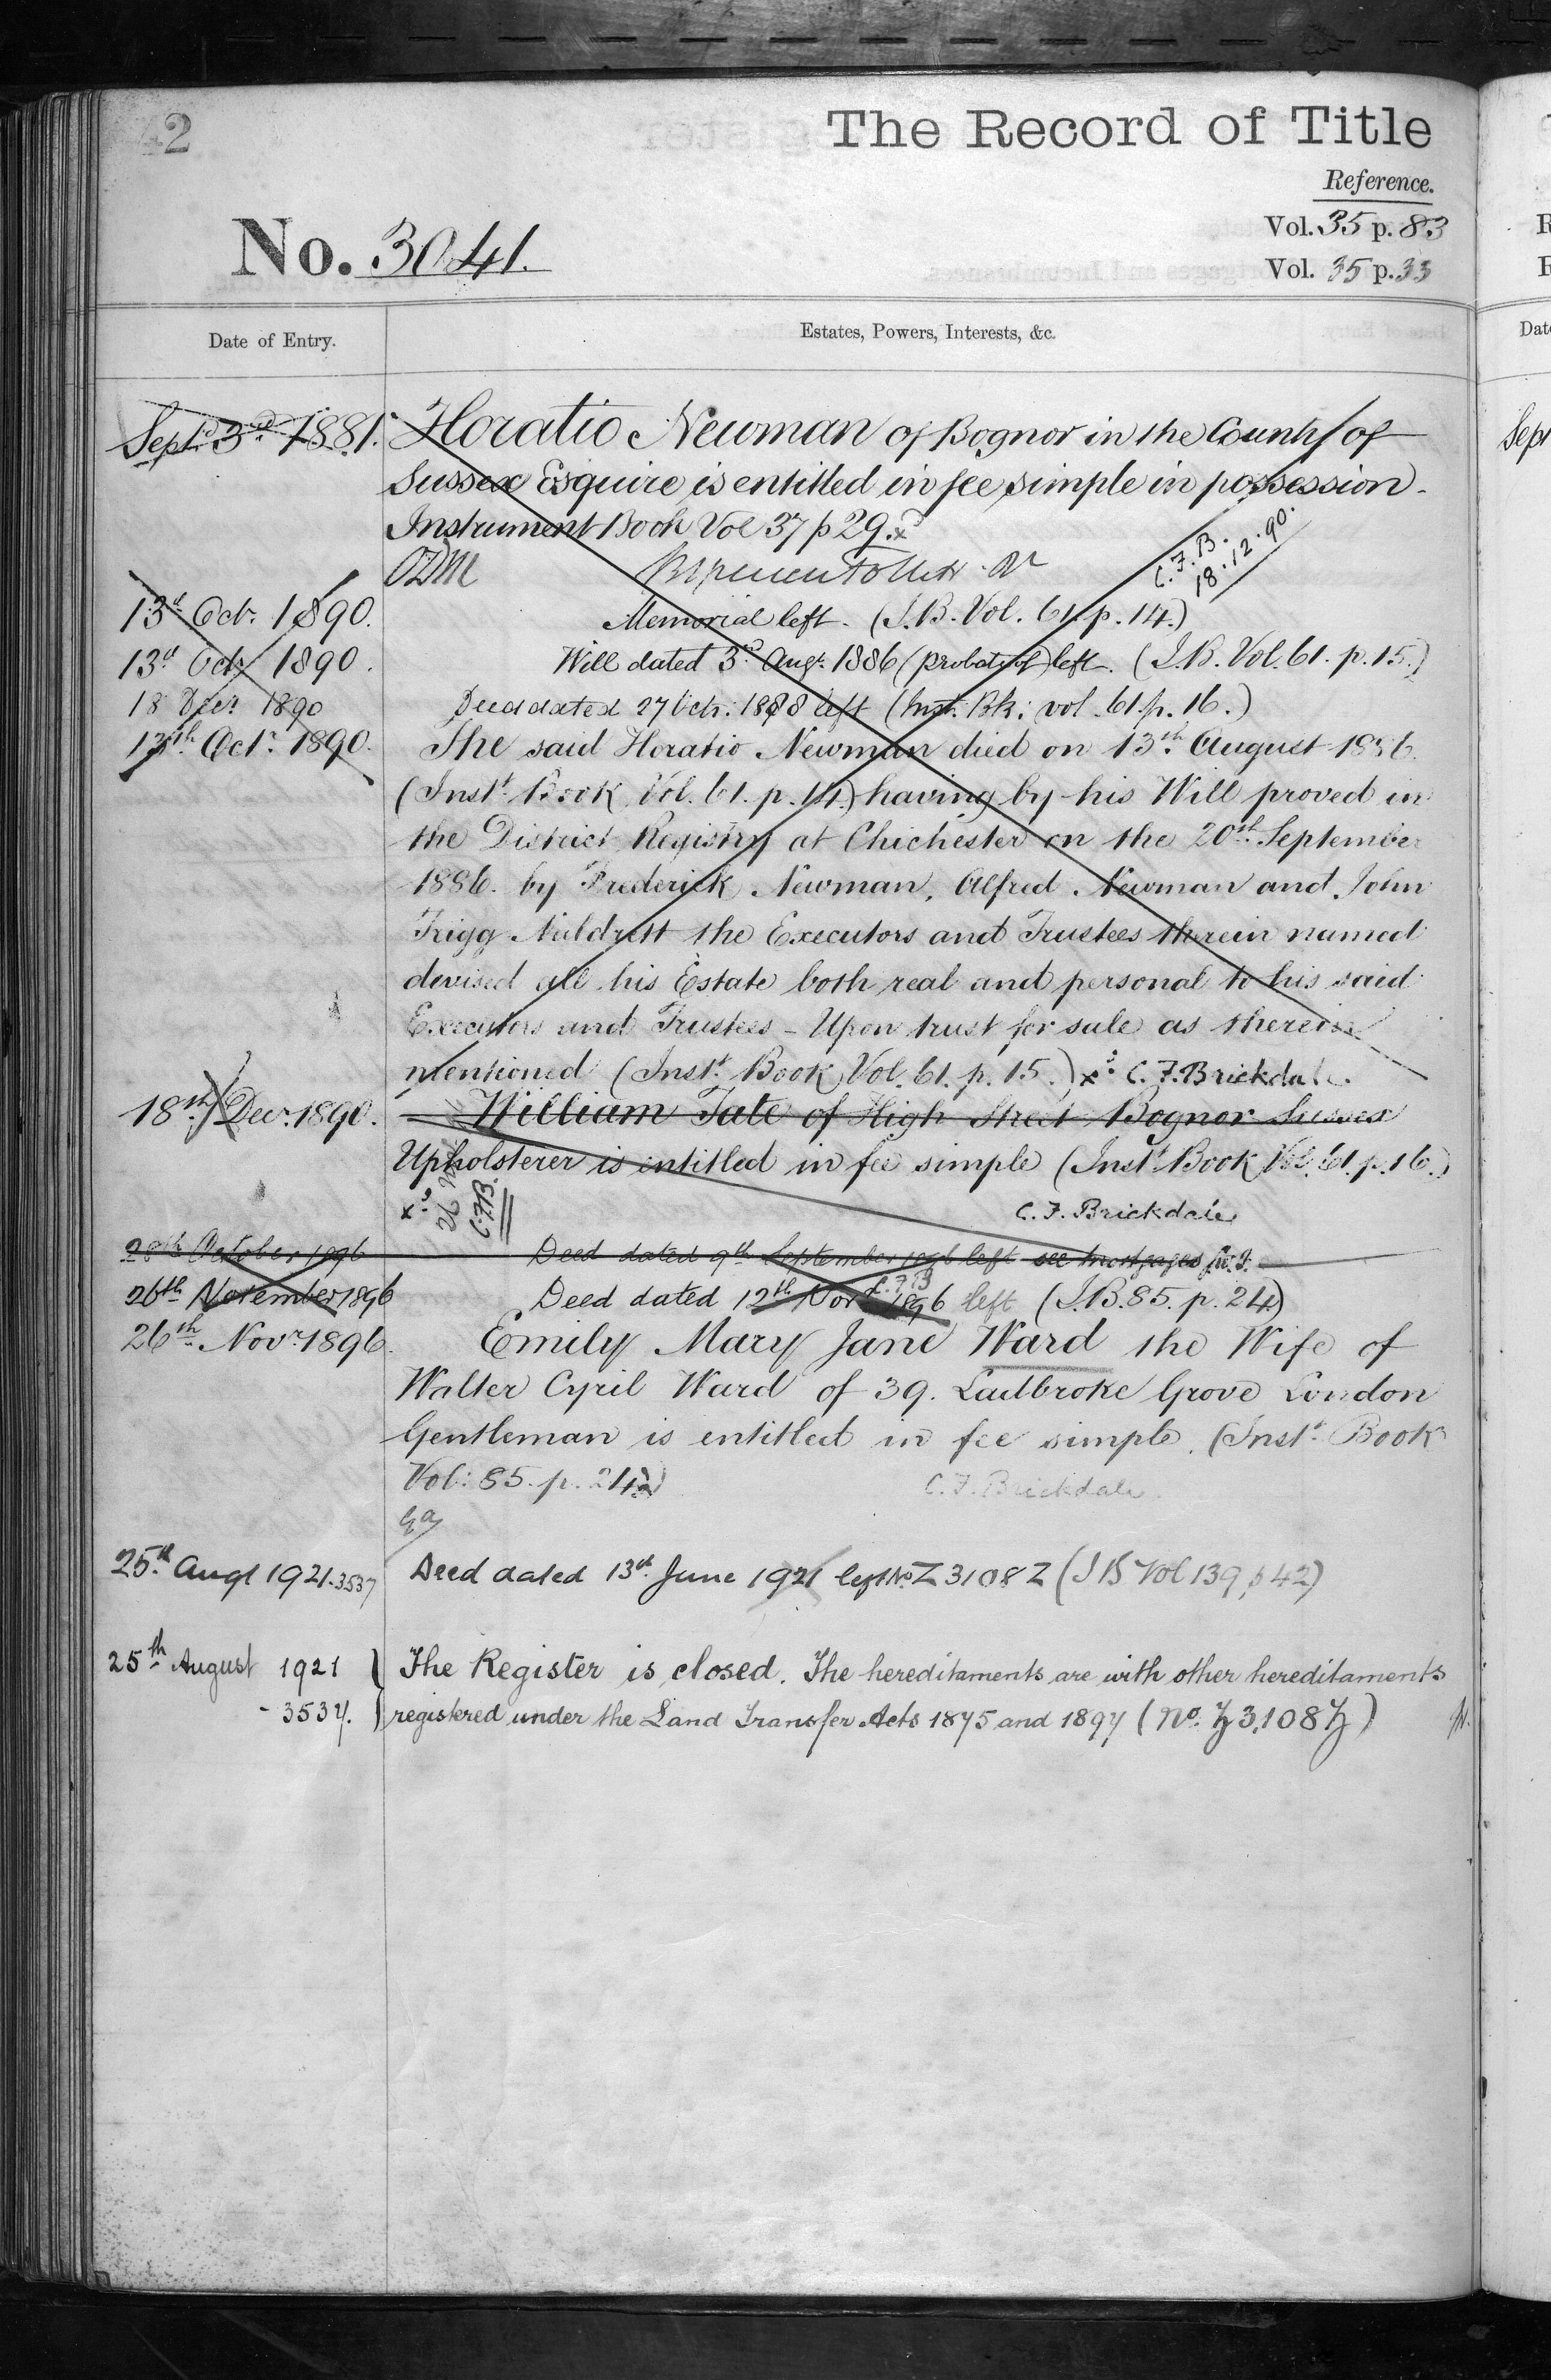 42
The Record of Title
Reference.
No. 3041.
Vol. 35 p. 83
Vol. 35 p. 33
Date of Entry.
Estates, Powers, Interests, &c.
Sept. 3rd 1881. Horatio Newman of Bognor in the County of
Sussex Esquire is entitled in fee simple in possession.
Instrument Book Vol 37 p 29.
C.F.B.
18.12.90.
13th Octr. 1890. Memorial left. (I.B. Vol. 61. p. 14.)
13th Octr 1890. Will dated 3rd Augt. 1886 (probate of) left. (I.B. Vol. 61. p. 15.)
18 Decr. 1890 Deed dated 27 Octr: 1888 left (Inst. Bk: vol. 61. p. 16.)
13th Octr. 1890. The said Horatio Newman died on 13th August 1886.
(Instt. Book Vol. 61. p. 14.) having by his Will proved in
the District Registry at Chichester on the 20th September
1886. by Frederick Newman, Alfred Newman and John
Trigg the Executors and Trustees therein named
devised all his Estate both real and personal to his said
Executors and Trustees - Upon trust for sale as therein
mentioned (Instt. Book Vol. 61. p. 15.) C. F. Brickdale.
18th Decr. 1890. William Tate of High Street Bognor Sussex
Upholsterer is intitled in fee simple (Instt. Book Vol. 61. p. 16.)
C.F.B.
C. F. Brickdale
28th October 1896 Deed dated 9th September 1896 left see mortgages
26th November 1896 Deed dated 12th Nov 1896 left (I.B. 85. p. 24)
C.F.B
26th Novr. 1896. Emily Mary Jane Ward the Wife of
Walter Cyril Ward of 39. Ladbroke Grove London
Gentleman is entitled in fee simple. (Instt. Book
Vol: 85. p. 24)
C. F. Brickdale
25th Augt 1921. 3537 Deed dated 13th June 1921 left No Z3108Z (I B Vol 139, p 42)
25th August 1921 The Register is closed. The hereditaments are with other hereditaments
- 3537. registered under the Land Transfer Acts 1875 and 1897 (No. Z3,108Z)
Date
Sept